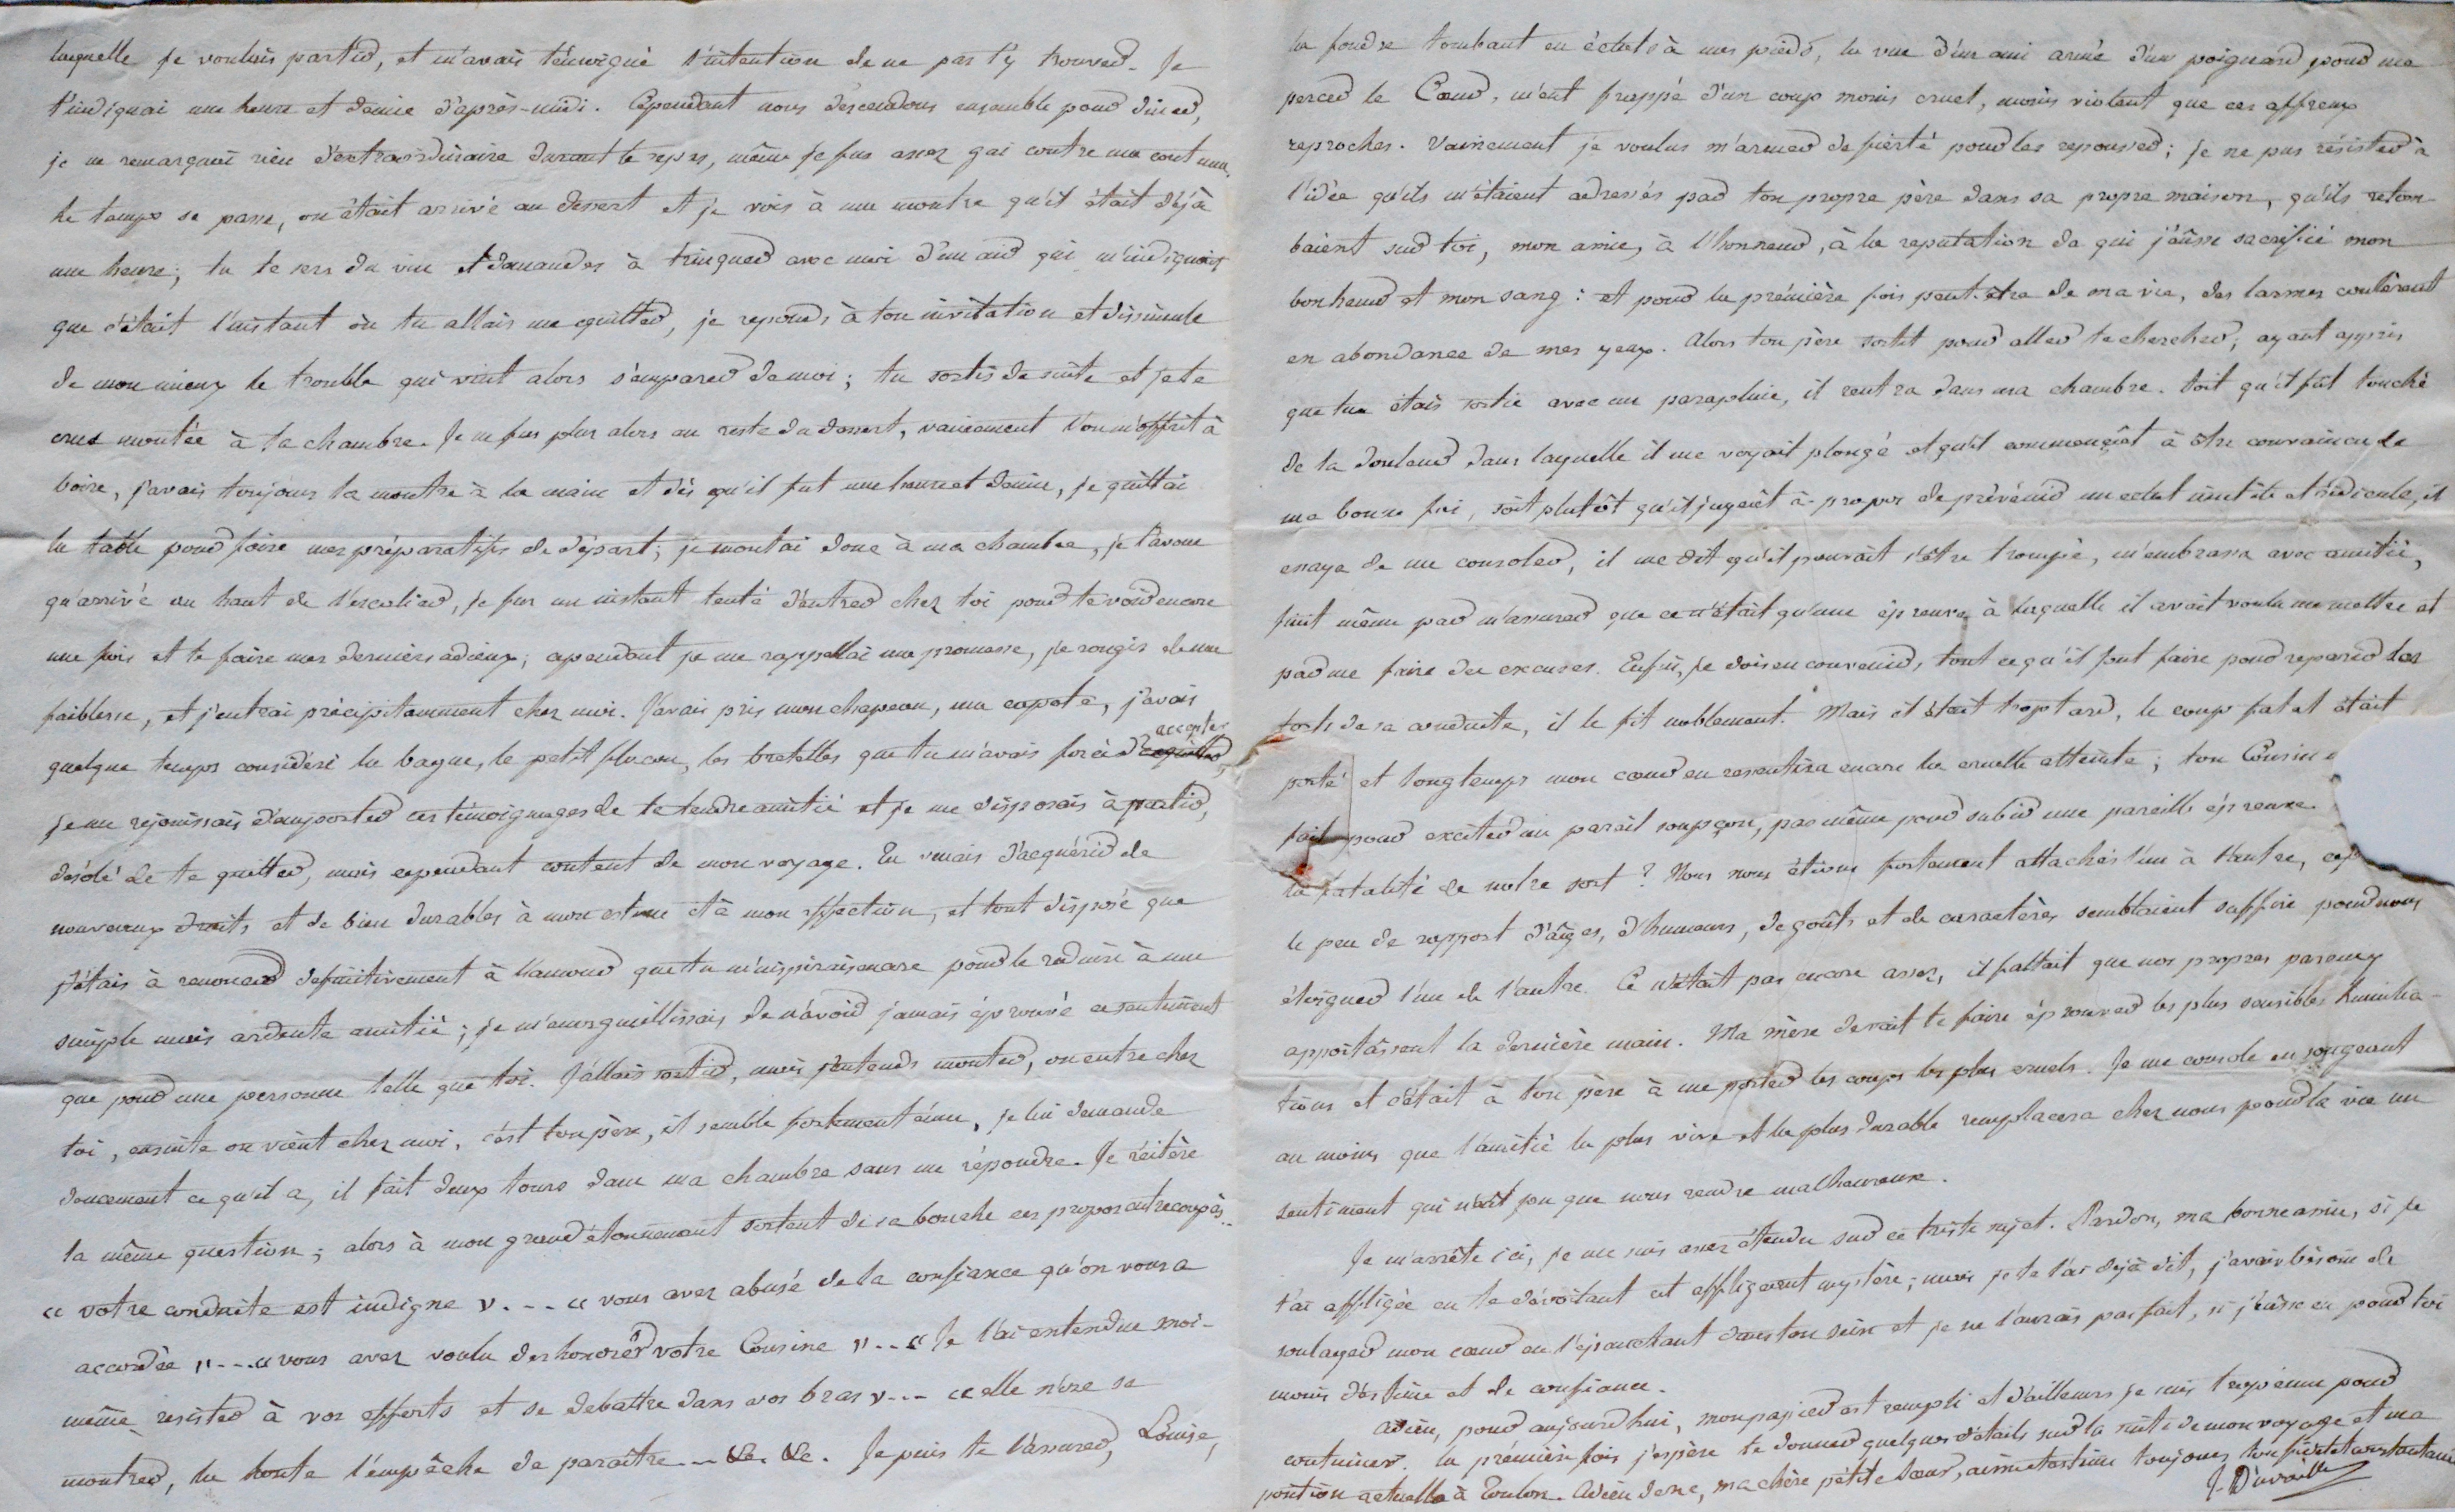 laquelle je voulais partir, et m'avais témoigné l'intention de ne pas t'y trouver. Je
t'indiquai une heure et demie d'après-midi. Cependant nous descendons ensemble pour diner,
je ne remarquai rien d'extraordinaire durant le repas, même je fus assez gai contre ma coutume,
le temps se passe, on était arrivé au dessert et je vois à une montre qu'il était déjà
une heure; tu te sers du vin et demandes à trinquer avec moi d'un air qui m'indiquait
que c'était l'instant où tu allais me quitter, je reponds à ton invitation et dissimule
de mon mieux le trouble qui vint alors s'emparer de moi; tu sortis de suite et je te
crus montée à ta chambre. Je ne fus plus alors au reste du dessert, vainement l'on m'offrit à
boire, j'avais toujours la montre à la main et dès qu'il fut une heure et demie, je quittai
la table pour faire mes préparatifs de départ; je montai donc à ma chambre, je t'avoue
qu'arrivé au haut de l'escalier, je fus un instant tenté d'entrer chez toi pour te voir encore
une fois et te faire mes derniers adieux; cependant je me rappellai ma promesse, je rougis de ma
faiblesse, et j'entrai précipitamment chez moi. J'avais pris mon chapeau, ma capote, j'avais
quelque temps considéré la bague, le petit flacon, les bretelles que tu m'avais forcé d'accepter,
je me rejouissais d'emporter ces témoignages de ta tendre amitié et je me disposais à partir,
désolé de te quitter, mais cependant content de mon voyage. Tu venais d'acquérir de
nouveaux droits et de bien durables à mon estime et à mon affection, et tout disposé que
j'étais à renoncer définitivement à l'amour que tu m'inspirais encore pour le reduire à une
simple mais ardente amitié; je m'enorgueillissais de n'avoir jamais éprouvé ce sentiment
que pour une personne telle que toi. J'allais sortir, mais j'entends monter, on entre chez
toi, ensuite on vient chez moi, c'est ton père, il semble fortement ému, je lui demande
doucement ce qu'il a, il fait deux tours dans ma chambre sans me répondre. Je réitère
la même question; alors à mon grand étonnement sortent de sa bouche ces propos entrecoupés...
« votre conduite est indigne »... « vous avez abusé de la confiance qu'on vous a
accordée »... « vous avez voulu deshonorer votre Cousine »... « Je l'ai entendue moi-
même resister à vos efforts et se debattre dans vos bras »... « elle n'ose se
montrer, la honte l'empêche de paraître... &c. &c. Je puis te l'assurer, Louise,
la foudre tombant en éclats à mes pieds, la vue d'un ami armé d'un poignard pour me
percer le Cœur, m'eut frappé d'un coup moins cruel, moins violent que ces affreux
reproches. Vainement je voulus m'armer de fierté pour les repousser; je ne pus résister à
l'idée qu'ils m'étaient adressés par ton propre père dans sa propre maison, qu'ils retom-
baient sur toi, mon amie, à l'honneur, à la reputation de qui j'eûsse sacrifié mon
bonheur et mon sang: et pour la première fois peut-être de ma vie, des larmes coulèrent
en abondance de mes yeux. Alors ton père sortit pour aller te chercher; ayant appris
que tu étais sortie avec un parapluie, il rentra dans ma chambre. Soit qu'il fût touché
de la douleur dans laquelle il me voyait plongé et qu'il commençât à être convaincu de
ma bonne foi, soit plutôt qu'il jugeât à-propos de prévenir un eclat inutile et ridicule, il
essaya de me consoler, il me dit qu'il pouvait s'être trompé, m'embrassa avec amitié,
finit même par m'assurer que ce n'était qu'une épreuve à laquelle il avait voulu me mettre et
par me faire des excuses. Enfin, je dois en convenir, tout ce qu'il faut faire pour reparer les
torts de sa conduite, il le fit noblement. Mais il était trop tard, le coup fatal était
porté et longtemps mon cœur en ressentira encore la cruelle atteinte; ton Cousin
fait pour exciter un pareil soupçon, pas même pour subir une pareille épreuve.
la fatalité de notre sort? Nous nous étions fortement attachés l'un à l'autre, cep
le peu de rapport d'âges, d'humeurs, de goûts et de caractères semblaient suffire pour nous
éloigner l'un de l'autre. Ce n'était pas encore assez, il fallait que nos propres parents
apportâssent la dernière main. Ma mère devait te faire éprouver les plus sensibles humilia-
tions et c'était à ton père à me porter les coups les plus cruels. Je me console en songeant
au moins que l'amitié la plus vive et la plus durable remplacera chez nous pour la vie un
sentiment qui n'eût pu que nous rendre malheureux.
Je m'arrête ici, je me suis assez étendu sur ce triste sujet. Pardon, ma bonne amie, si je
t'ai affligée en te dévoilant cet affligeant mystère; mais je te l'ai déjà dit, j'avais besoin de
soulager mon cœur en l'épanchant dans ton sein et je ne l'aurais pas fait, si j'eûsse eu pour toi
moins d'estime et de confiance.
Adieu, pour aujourd'hui, mon papier est rempli et d'ailleurs je suis trop ému pour
continuer. la première fois j'espère te donner quelques détails sur la suite de mon voyage et ma
position actuelle à Toulon. Adieu donc, ma chère petite sœur, aime et estime toujours ton fidèle et constant ami
J. Duvaille